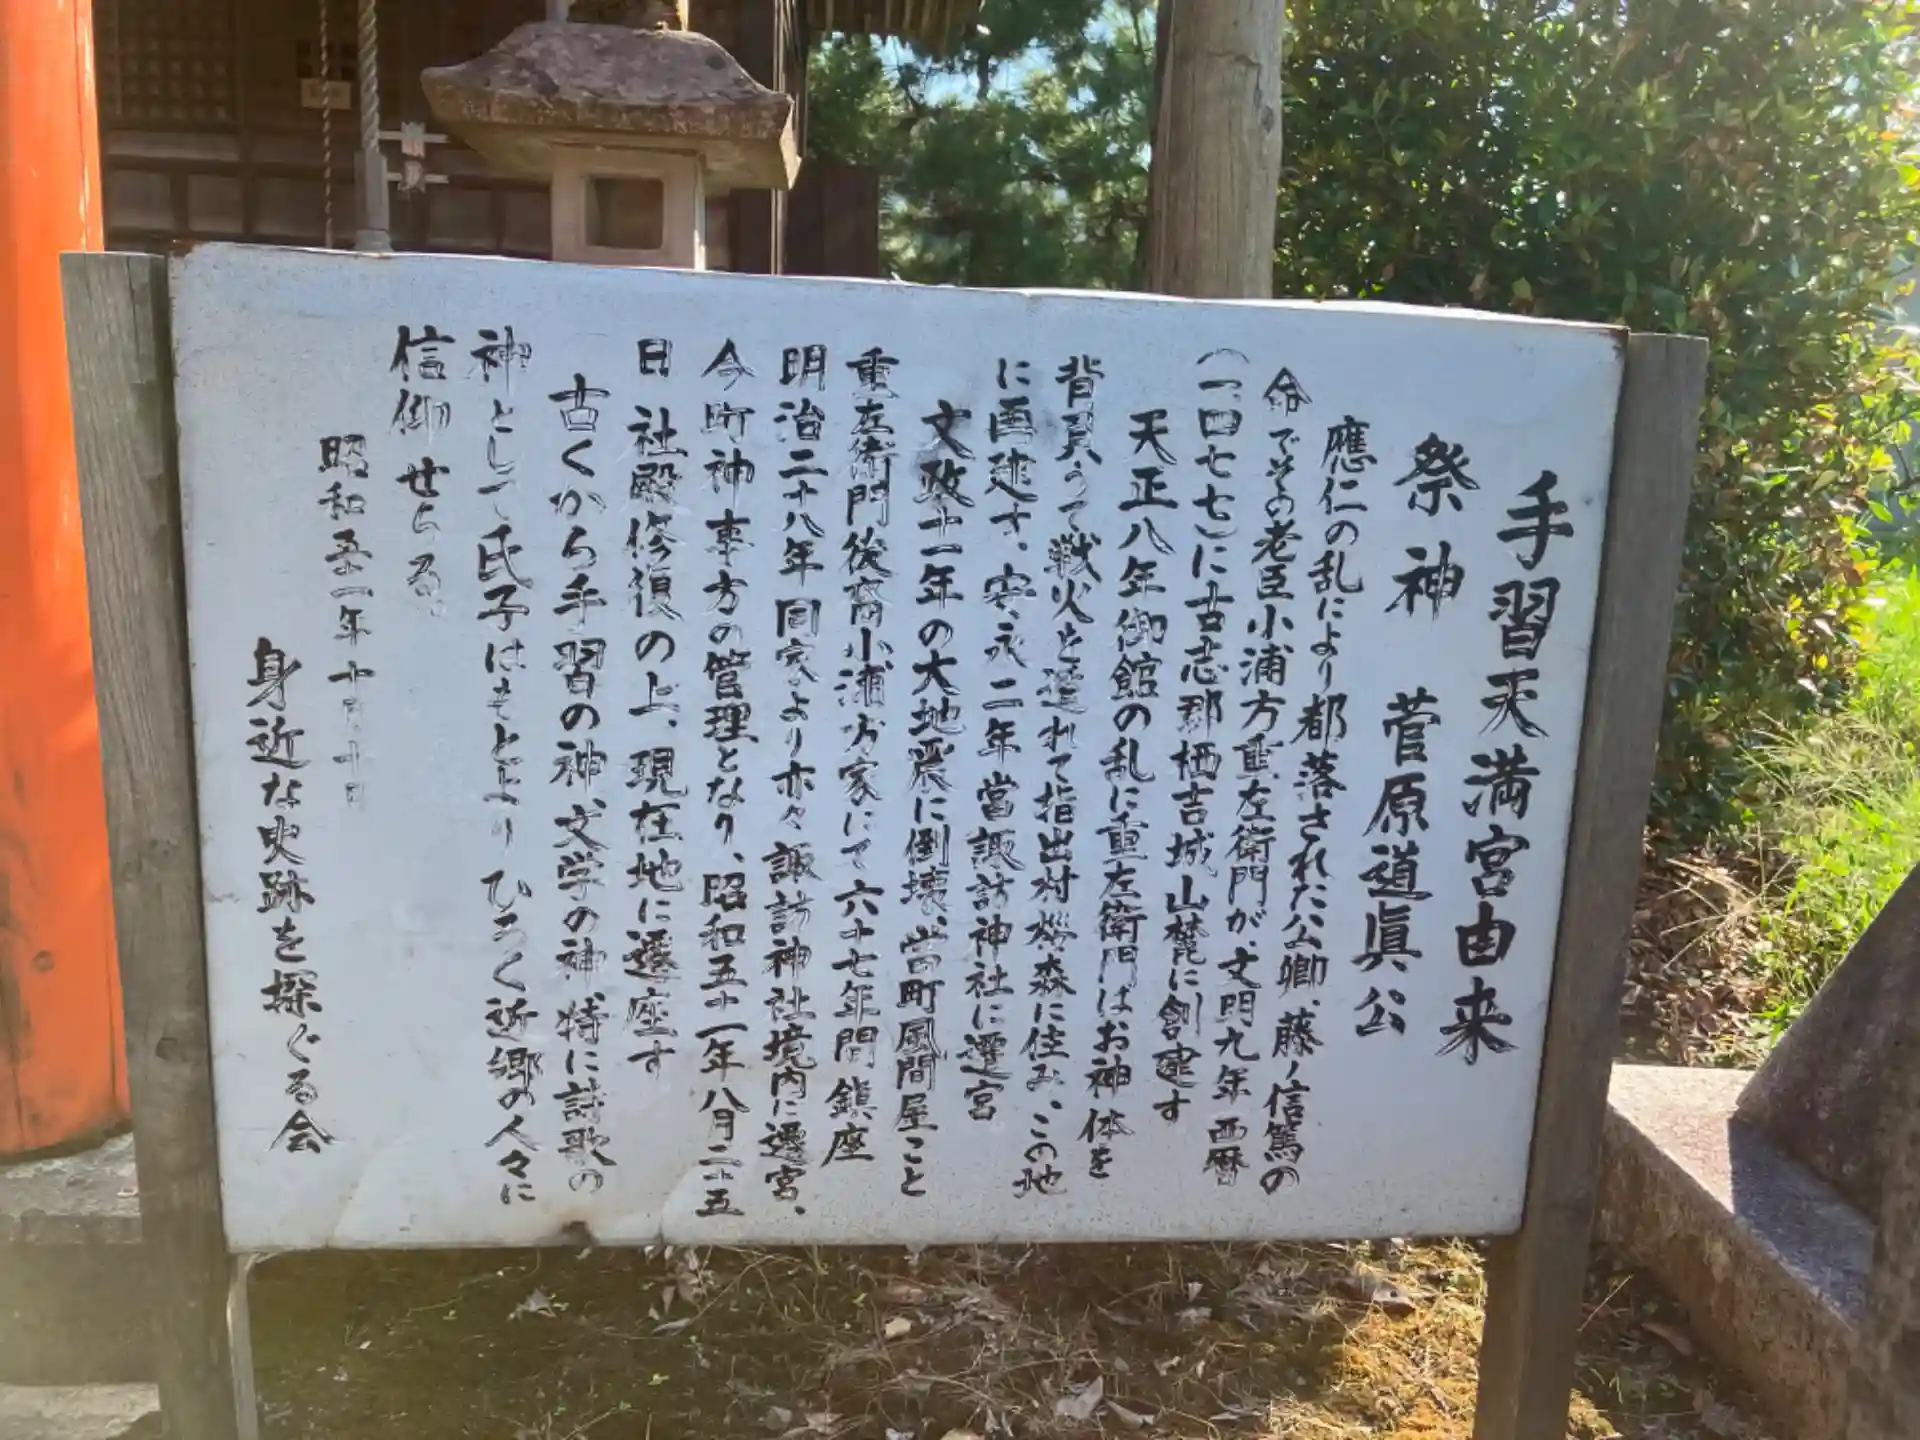 手習天満宮由来
祭神 菅原道眞公
應仁の乱により都落された公卿、藤ノ信篤の
命でその老臣小浦方重左衛門が、文明九年 西暦
(一四七七)に古志郡栖吉城山麓に創建す
天正八年御館の乱に重左衛門はお神体を
背負うて戦火を遁れて指出村 森に住み、この地
に再建す、安永二年當諏訪神社に遷宮
文政十一年の大地震に倒壊、当町風間屋こと
重左衛門後裔小浦方家にて六十七年間鎮座
明治二十八年同家より亦々諏訪神社境内に遷宮、
今町神事方の管理となり、昭和五十一年八月二十五
日 社殿修復の上、現在地に遷座す
古くから手習の神、文学の神、特に詩歌の
神として氏子はもとよりひろく近郷の人々に
信仰せらる。
昭和五十一年十月十日
身近な史跡を探ぐる会